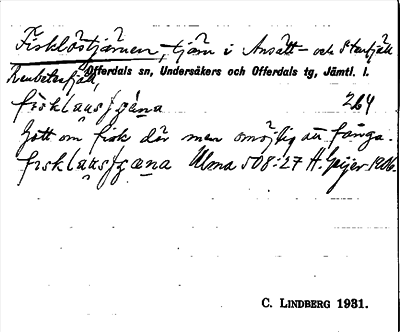 Fisklöstjärnen, tjärn i Ansätt- och Stenfjäll
Renbetesfjäll,
Offerdals sn, Undersåkers och Offerdals tg, Jämtl. l.
264
Gott om fisk där men omöjlig att fånga.
Ulma 508:27 H. Geijer 1906.
C. LINDBERG 1931.